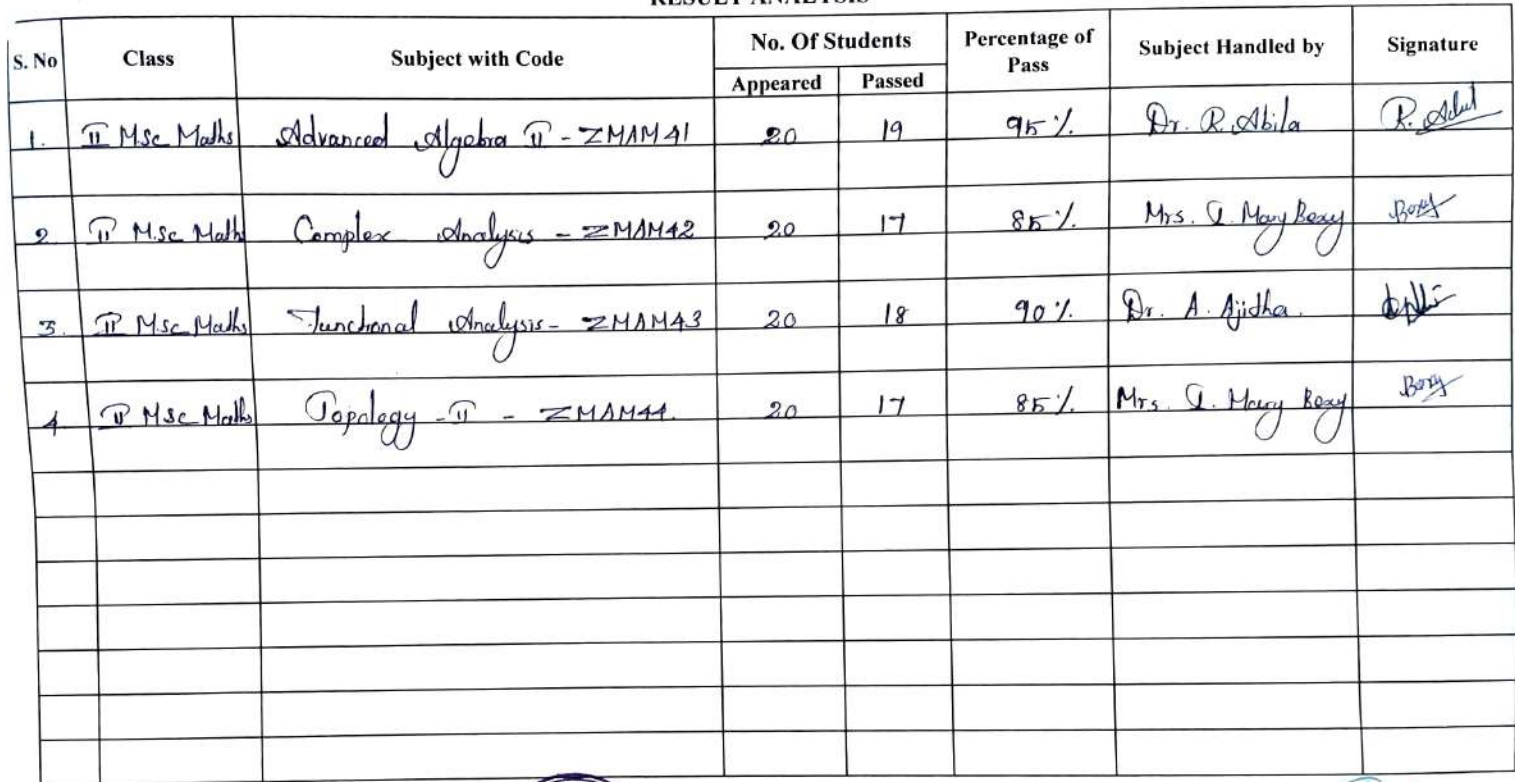 RESULT ANALYSIS
S. No Class Subject with Code No. Of Students Percentage of Pass Subject Handled by Signature
Appeared Passed
1. II M.Sc Maths Advanced Algebra II - ZMAM41 20 19 95% Dr. R. Abila
2. II M.Sc Maths Complex Analysis - ZMAM42 20 17 85% Mrs. Mary Bexy
3. II M.Sc Maths Functional Analysis - ZMAM43 20 18 90% Dr. A. Ajitha.
4. II M.Sc Maths Topology - II - ZMAM44. 20 17 85% Mrs. Mary Bexy